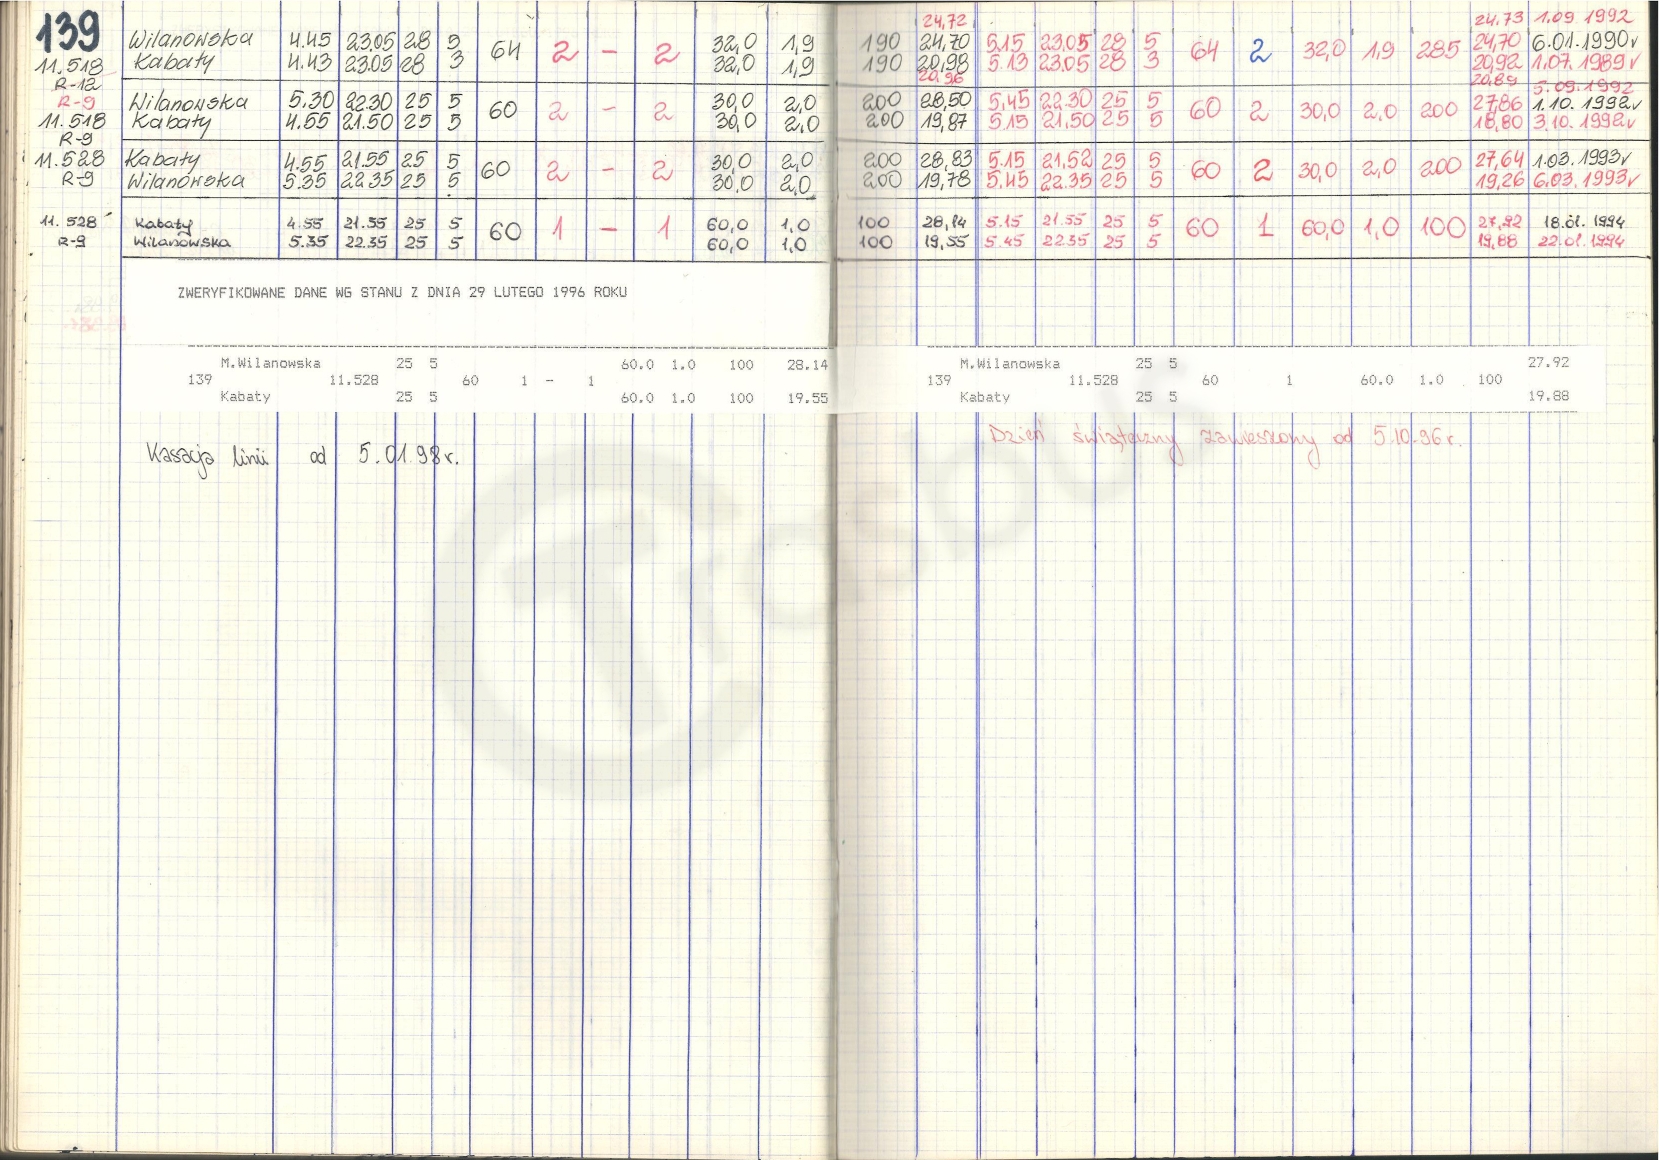 24,72 24.73 1.09 1992
139 Wilanowska 4.45 23.05 28 5 64 2 - 2 32,0 1,9 190 24,70 5.15 23.05 28 5 64 2 32,0 1,9 285 24,70 6.01.1990r
11.518 Kabaty 4.43 23.05 28 3 32,0 1,9 190 20,98 5.13 23.05 28 3 20,92 1.07.1989r
R-12 20.96 20.89 5.09.1992
R-9 Wilanowska 5.30 22.30 25 5 60 2 - 2 30,0 2,0 200 28,50 5,45 22.30 25 5 60 2 30,0 2,0 200 27,86 1.10.1992r
11.518 Kabaty 4.55 21.50 25 5 30,0 2,0 200 19,87 5.15 21.50 25 5 18,80 3.10.1992r
R-9
11.528 Kabaty 4.55 21.55 25 5 60 2 - 2 30,0 2,0 200 28,83 5.15 21.52 25 5 60 2 30,0 2,0 200 27,64 1.03.1993r
R-9 Wilanowska 5.35 22.35 25 5 30,0 2,0 200 19,78 5.45 22.35 25 5 19,26 6.03.1993r
11.528 Kabaty 4.55 21.55 25 5 60 1 - 1 60,0 1,0 100 28,14 5.15 21.55 25 5 60 1 60,0 1,0 100 27,92 18.01.1994
R-9 Wilanowska 5.35 22.35 25 5 60,0 1,0 100 19,55 5.45 22.35 25 5 19,88 22.01.1994
ZWERYFIKOWANE DANE WG STANU Z DNIA 29 LUTEGO 1996 ROKU
M.Wilanowska 25 5 60.0 1.0 100 28.14 M.Wilanowska 25 5 27.92
139 11.528 60 1 - 1 139 11.528 60 1 60.0 1.0 100
Kabaty 25 5 60.0 1.0 100 19.55 Kabaty 25 5 19.88
Dzień świąteczny zawieszony od 5.10.96r.
Kasacja linii od 5.01.98r.
Trasbus